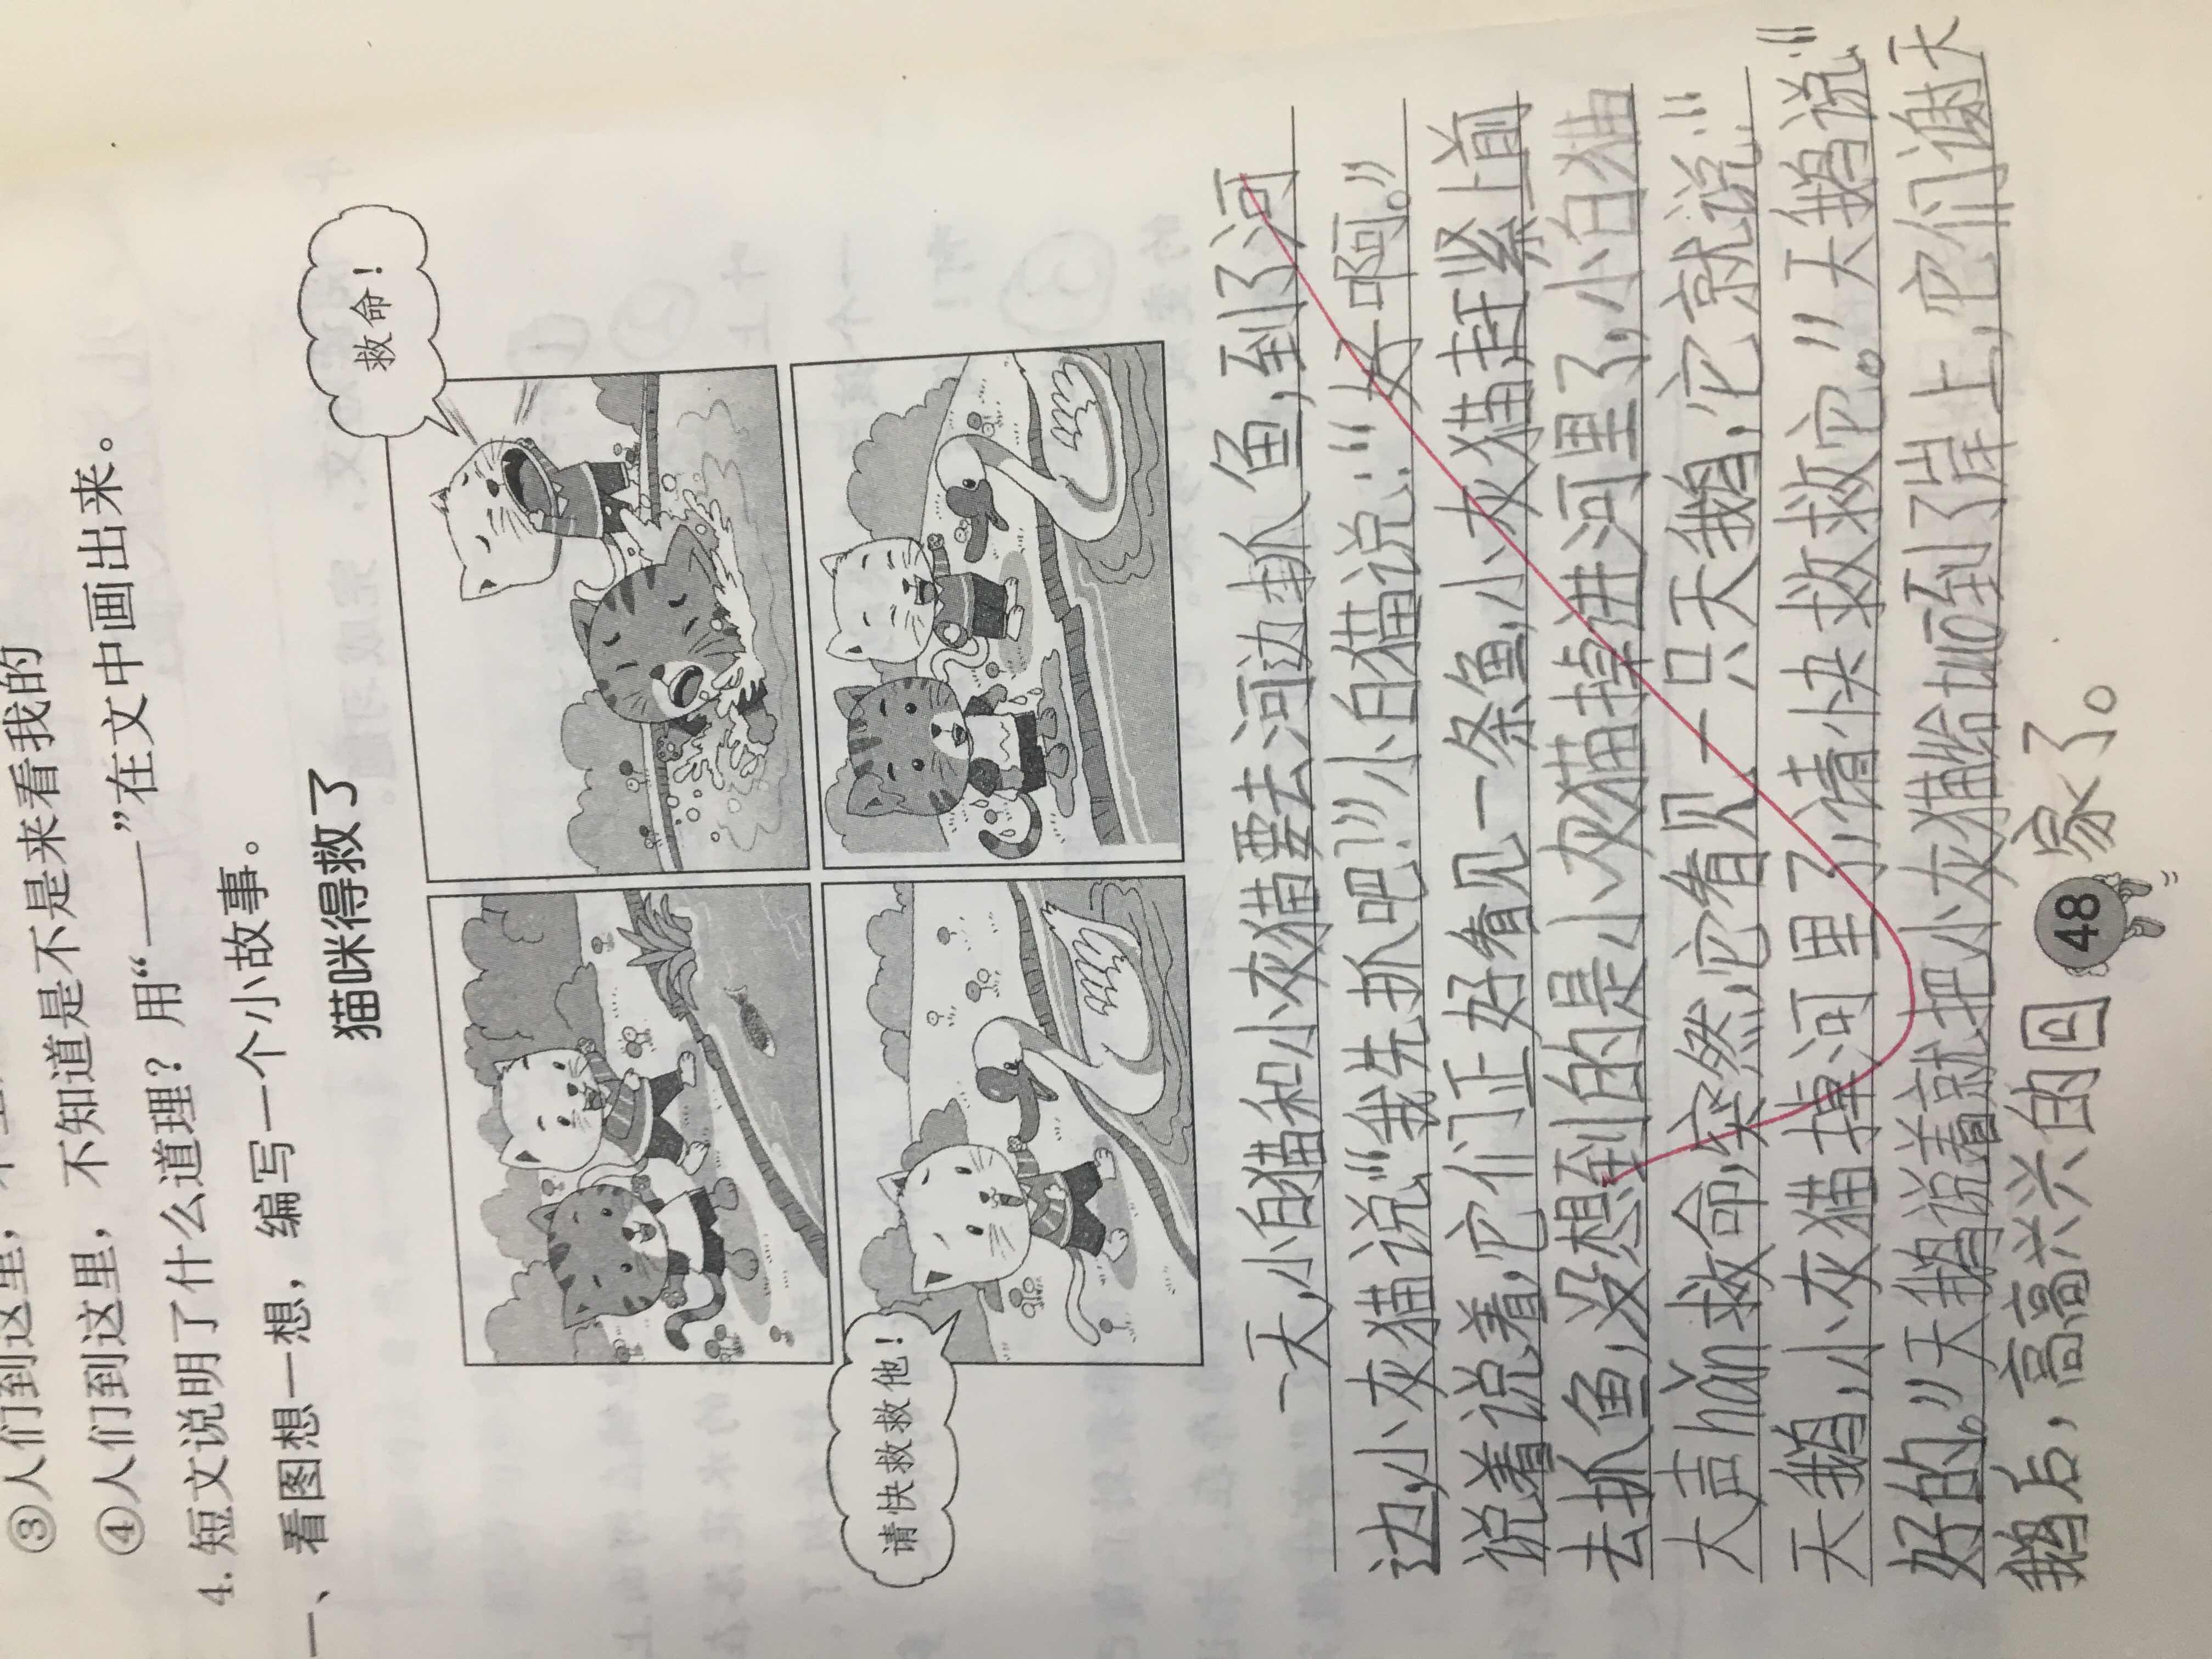 ③人们到这里，不知道是不是来看我的
④人们到这里，不知道是不是来看我的
4. 短文说明了什么道理？用“——”在文中画出来。
一、看图想一想，编写一个小故事。
猫咪得救了
救命！
请快救救他！
一天,小白猫和小灰猫要去河边抓鱼,到了河
边,小灰猫说“我先抓吧！”小白猫说:“好啊。”
说着说着,它们正好看见一条鱼,小灰猫赶紧上前
去抓鱼,没想到的是小灰猫掉进河里了,小白猫
大声hǎn救命,突然,它看见一只天鹅,它就说:“
天鹅,小灰猫掉河里了,请快救救它。”天鹅说:“
好的。”天鹅说着就把小灰猫给tuō到了岸上,它们谢天
鹅后，高高兴兴的回家了。
48